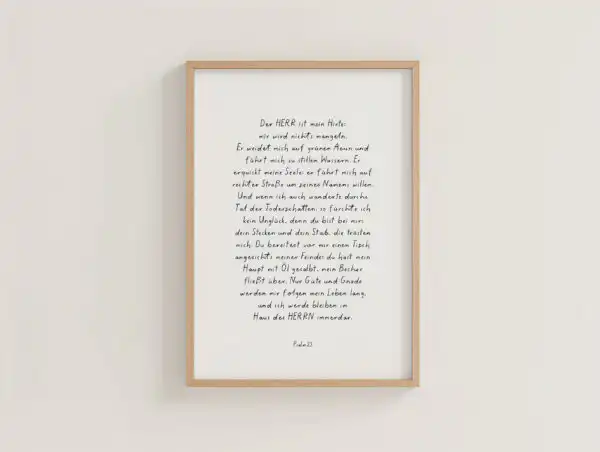 Der HERR ist mein Hirte;
mir wird nichts mangeln.
Er weidet mich auf grünen Auen und
führt mich zu stillen Wassern. Er
erquickt meine Seele; er führt mich auf
rechter Straße um seines Namens willen.
Und wenn ich auch wanderte durchs
Tal der Todesschatten, so fürchte ich
kein Unglück, denn du bist bei mir;
dein Stecken und dein Stab, die trösten
mich. Du bereitest vor mir einen Tisch
angesichts meiner Feinde; du hast mein
Haupt mit Öl gesalbt, mein Becher
fließt über. Nur Güte und Gnade
werden mir folgen mein Leben lang,
und ich werde bleiben im
Haus des HERRN immerdar.
Psalm 23